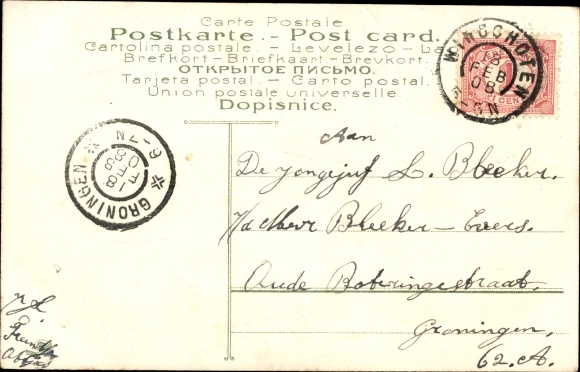 Carte Postale.
Postkarte. - Post card.
Cartolina postale. - Levelezo - L
Brefkort - Briefkaart - Brevkort.
ОТКРЫТОЕ ПИСЬМО.
Tarjeta postal. - Carto postal.
Union postale universelle.
Dopisnice.
WINSCHOTEN
FEB
08
GRONINGEN
6-7N
FEB
Aan
De jongejuf L. Bleeker.
Bleeker - Evers.
Oude Boteringestraat.
Groningen,
62.A.